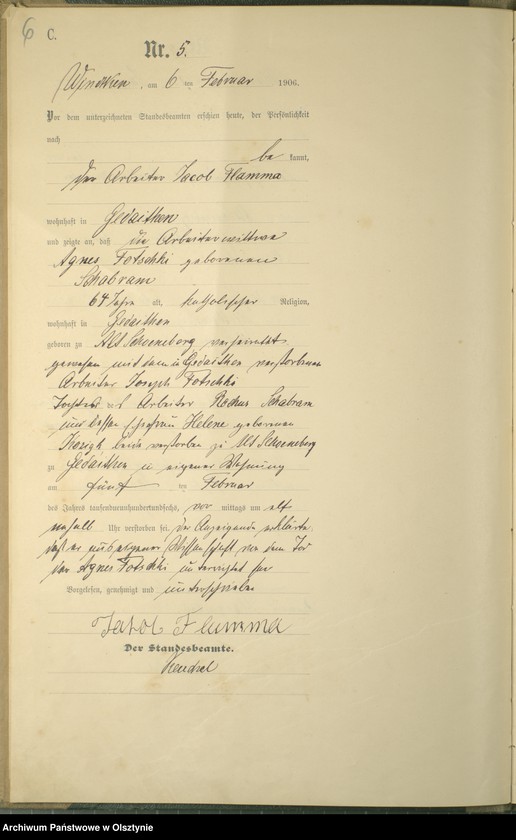 6 C.
Nr. 5.
Wuttrien, am 6 ten Februar 1906.
Vor dem unterzeichneten Standesbeamten erschien heute, der Persönlichkeit
nach
be kannt,
der Arbeiter Jacob Flamma
wohnhaft in Gedaithen
und zeigte an, daß die Arbeiterwittwe
Agnes Fotschki geborenen
Schabram
64 Jahre alt, katholischer Religion,
wohnhaft in Gedaithen
geboren zu Alt Schoeneberg verheirathet
gewesen mit dem in Gedaithen verstorbenen
Arbeiter Joseph Fotschki
Tochter des Arbeiter Rochus Schabram
und dessen Ehefrau Helene geborenen
beide verstorben zu Alt Schoeneberg
zu Gedaithen in eigener Wohnung
am fünf ten Februar
des Jahres tausendneunhundertundsechs, vor mittags um elf
einhalb Uhr verstorben sei. Der Anzeigende erklärte,
daß er aus eigener Wissenschaft von dem Tod
der Agnes Fotschki unterrichtet sei
Vorgelesen, genehmigt und unterschrieben
Jakob Flamma
Der Standesbeamte.
Archiwum Państwowe w Olsztynie